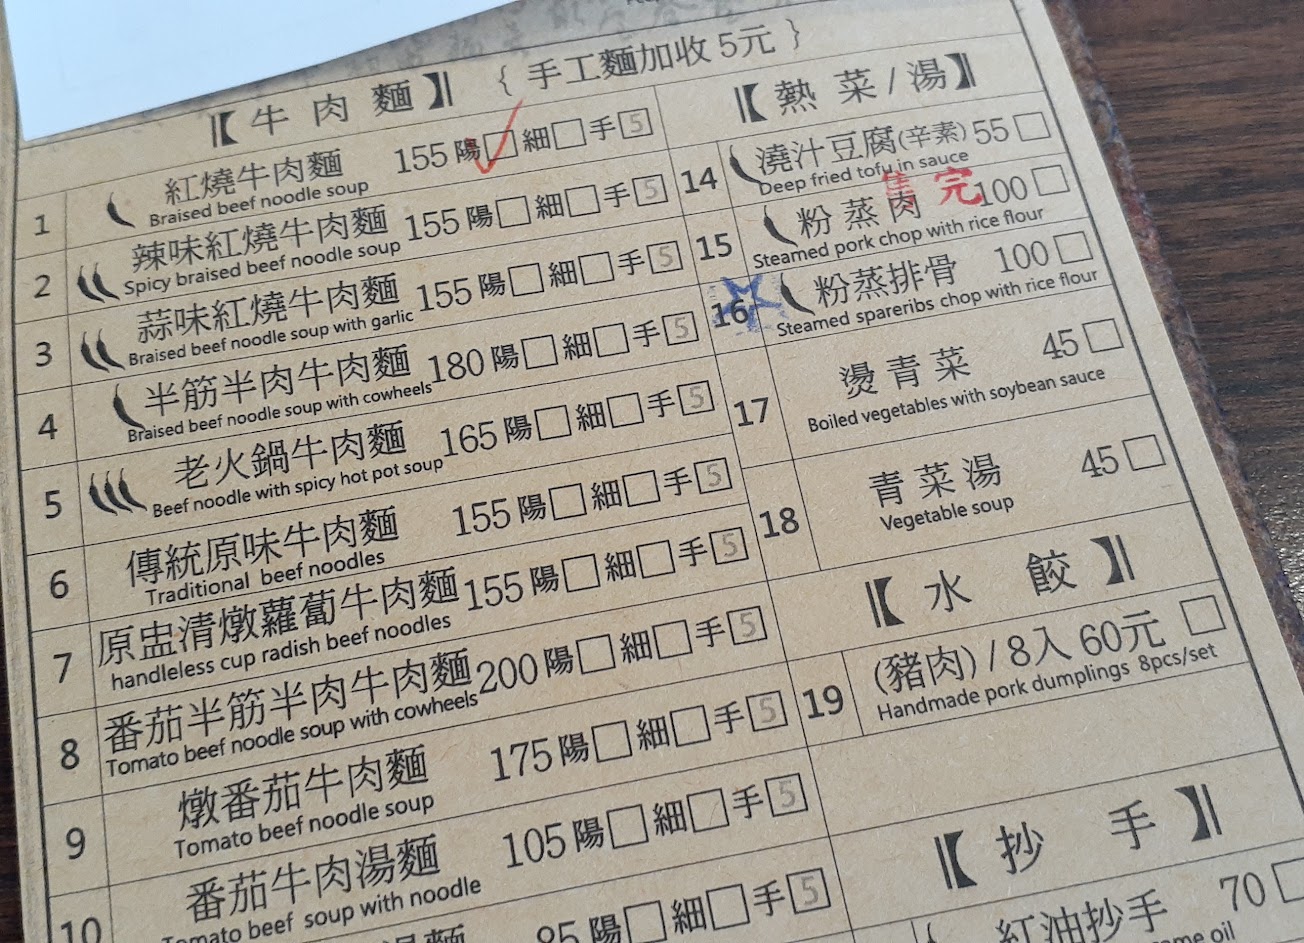 【牛肉麵】 { 手工麵加收 5元 }
1 紅燒牛肉麵 155 陽 細 手 5
Braised beef noodle soup
2 辣味紅燒牛肉麵 155 陽 細 手 5
Spicy braised beef noodle soup
3 蒜味紅燒牛肉麵 155 陽 細 手 5
Braised beef noodle soup with garlic
4 半筋半肉牛肉麵 180 陽 細 手 5
Braised beef noodle soup with cowheels
5 老火鍋牛肉麵 165 陽 細 手 5
Beef noodle with spicy hot pot soup
6 傳統原味牛肉麵 155 陽 細 手 5
Traditional beef noodles
7 原盅清燉蘿蔔牛肉麵 155 陽 細 手 5
handleless cup radish beef noodles
8 番茄半筋半肉牛肉麵 200 陽 細 手 5
Tomato beef noodle soup with cowheels
9 燉番茄牛肉麵 175 陽 細 手 5
Tomato beef noodle soup
10 番茄牛肉湯麵 105 陽 細 手 5
Tomato beef soup with noodle
湯麵 85 陽 細 手 5
【熱菜/湯】
14 澆汁豆腐(辛素) 55
Deep fried tofu in sauce
售完
15 粉蒸肉 100
Steamed pork chop with rice flour
16 粉蒸排骨 100
Steamed spareribs chop with rice flour
17 燙青菜 45
Boiled vegetables with soybean sauce
18 青菜湯 45
Vegetable soup
【水餃】
19 (豬肉) / 8入 60元
Handmade pork dumplings 8pcs/set
【抄手】
紅油抄手 70
oil